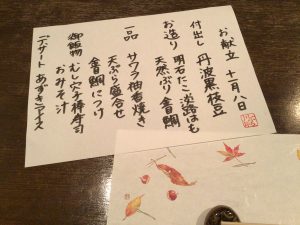 お献立 十一月八日
付出し 丹波黒枝豆
お造り 明石だこ 淡路はも
天然ぶり 金目鯛
一品 サワラ柚香焼き
天ぷら盛合せ
金目鯛につけ
御飯物 むし穴子棒寿司
おみそ汁
デザート あずきアイス